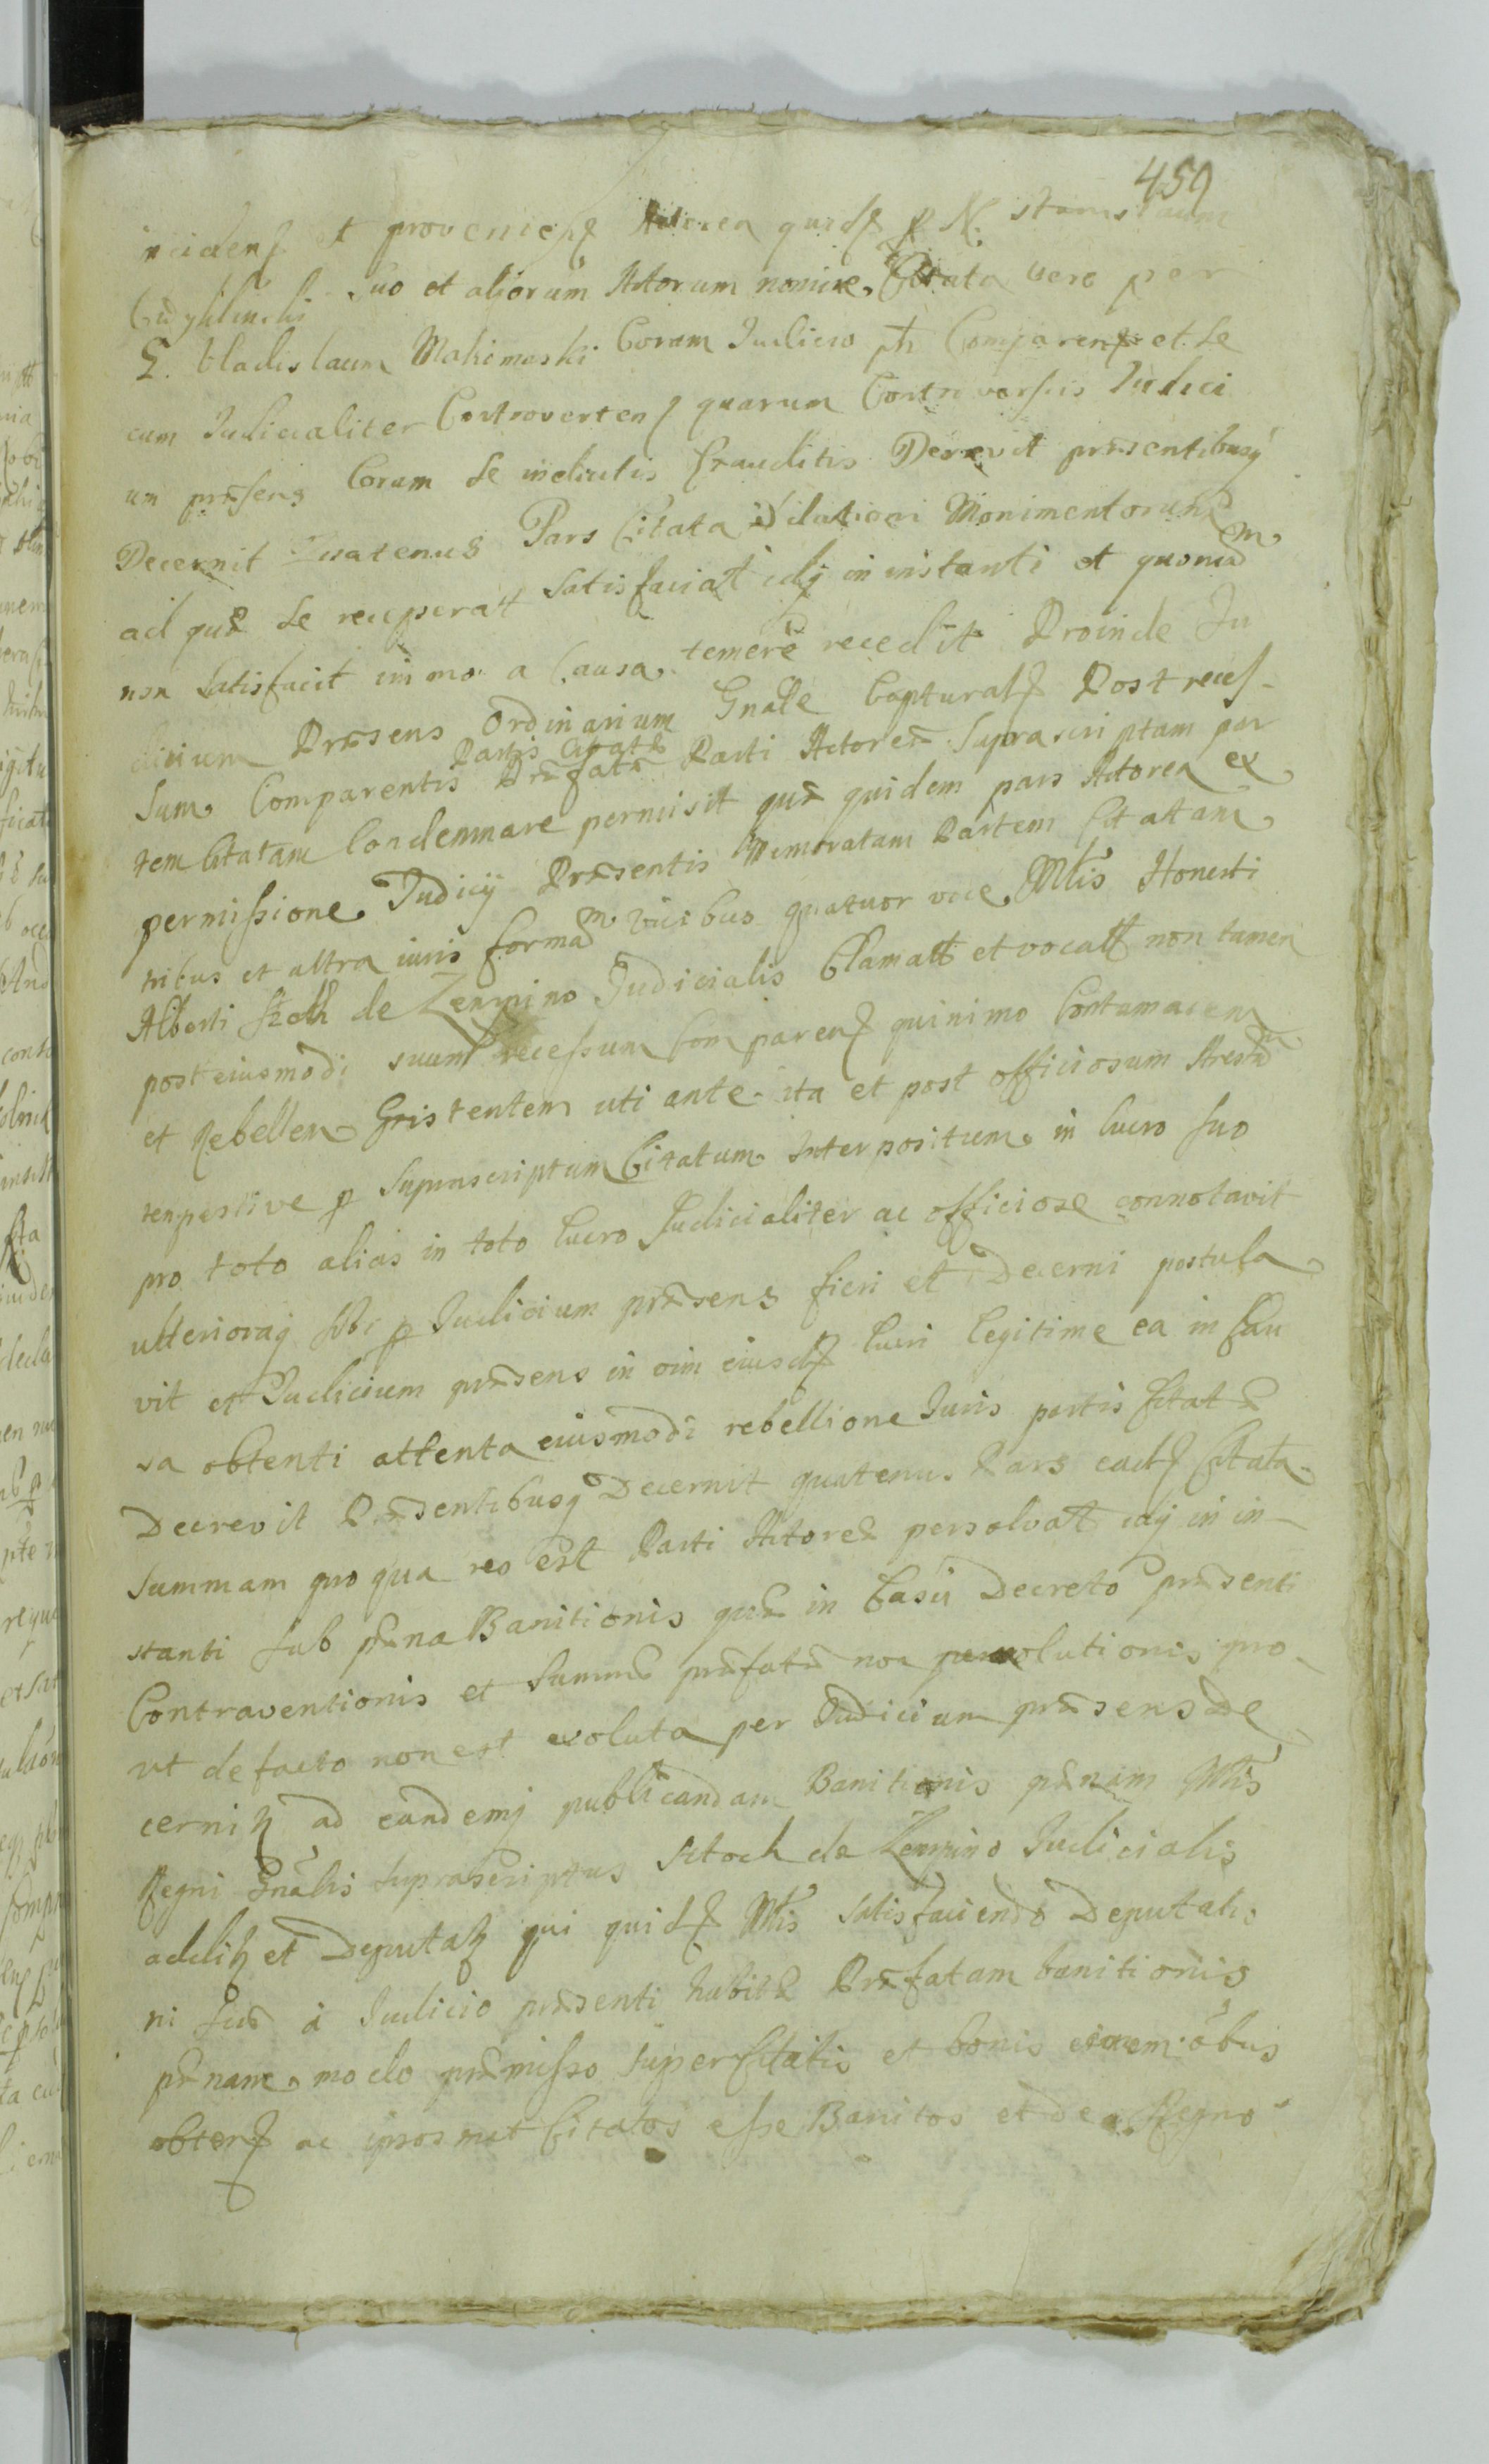 459
incidens et proveniens Actorea quidẽ ꝑ N. Stanislaum
suo et aliorum Actorum nomine, Citata vero per
G. Vladislaum Makimoski Coram Judicio pñ Comparens et se
cum Judicialiter Controverten quarum Controversiis Judici
um præsens Coram se inductis Exauditis Decrevit præsentibusq
Decernit Quatenus Pars Citata Dilationi Monimentorum
ad quæ se receperat satisfaciat idq in instanti et quoniam
non satisfacit immo a Causa temere recedit Proinde Ju
dicium Præsens Ordinarium Gnale Capturale Post reces-
Partis Citatæ
sum Comparentis Præfatæ Parti Actoreæ Suprascriptam par
tem Citatam Condemnare permisit quæ quidem pars Actorea ex
permissione Judicij Præsentis Memoratam Partem Citatam
tribus et ultra iuris formam vicibus quatuor voce Mlis Honesti
Alberti Stoch de Zempino Judicialis Clamatt et vocatt non tamen
post eiusmodi suum recessum Comparen quinimo Contumacem
et Rebellem Existentem uti ante ita et post officiosum Arestum
tempestive ꝑ Suprascriptum Citatum Interpositum in lucro suo
pro toto alias in toto lucro Judicialiter ac officiose connotavit
ulterioraq sibi ꝑ Judicium præsens fieri et Decerni postula
vit et Judicium præsens in vim eiusdẽ lucri legitime ea in Cau
sa obtenti attenta eiusmodi rebellione Juris partis Citatæ
Decrevit Præsentibusq Decernit quatenus Pars eadẽ Citata
Summam pro qua reo est Parti Actoreæ persolvat idq in in-
stanti sub pæna Banitionis quæ in Casu Decreto præsenti
Contraventionis et Summæ præfatæ non persolutionis pro-
ut de facto non est exoluta per Judicium præsens De
cernitꝶ ad eandemq publicandam Banitionis pænam Mlis
Regni Gnalis Suprascriptus Stoch de Zempino Judicialis
additꝶ et Deputatꝶ qui quidẽ Mlis satisfaciendo Deputatio
ni suæ a Judicio præsenti habitæ Præfatam banitionis
pænam modo præmisso super Citatis et bonis eorum oibus
obten ac ipsosmet Citatos esse Banitos et de Regno